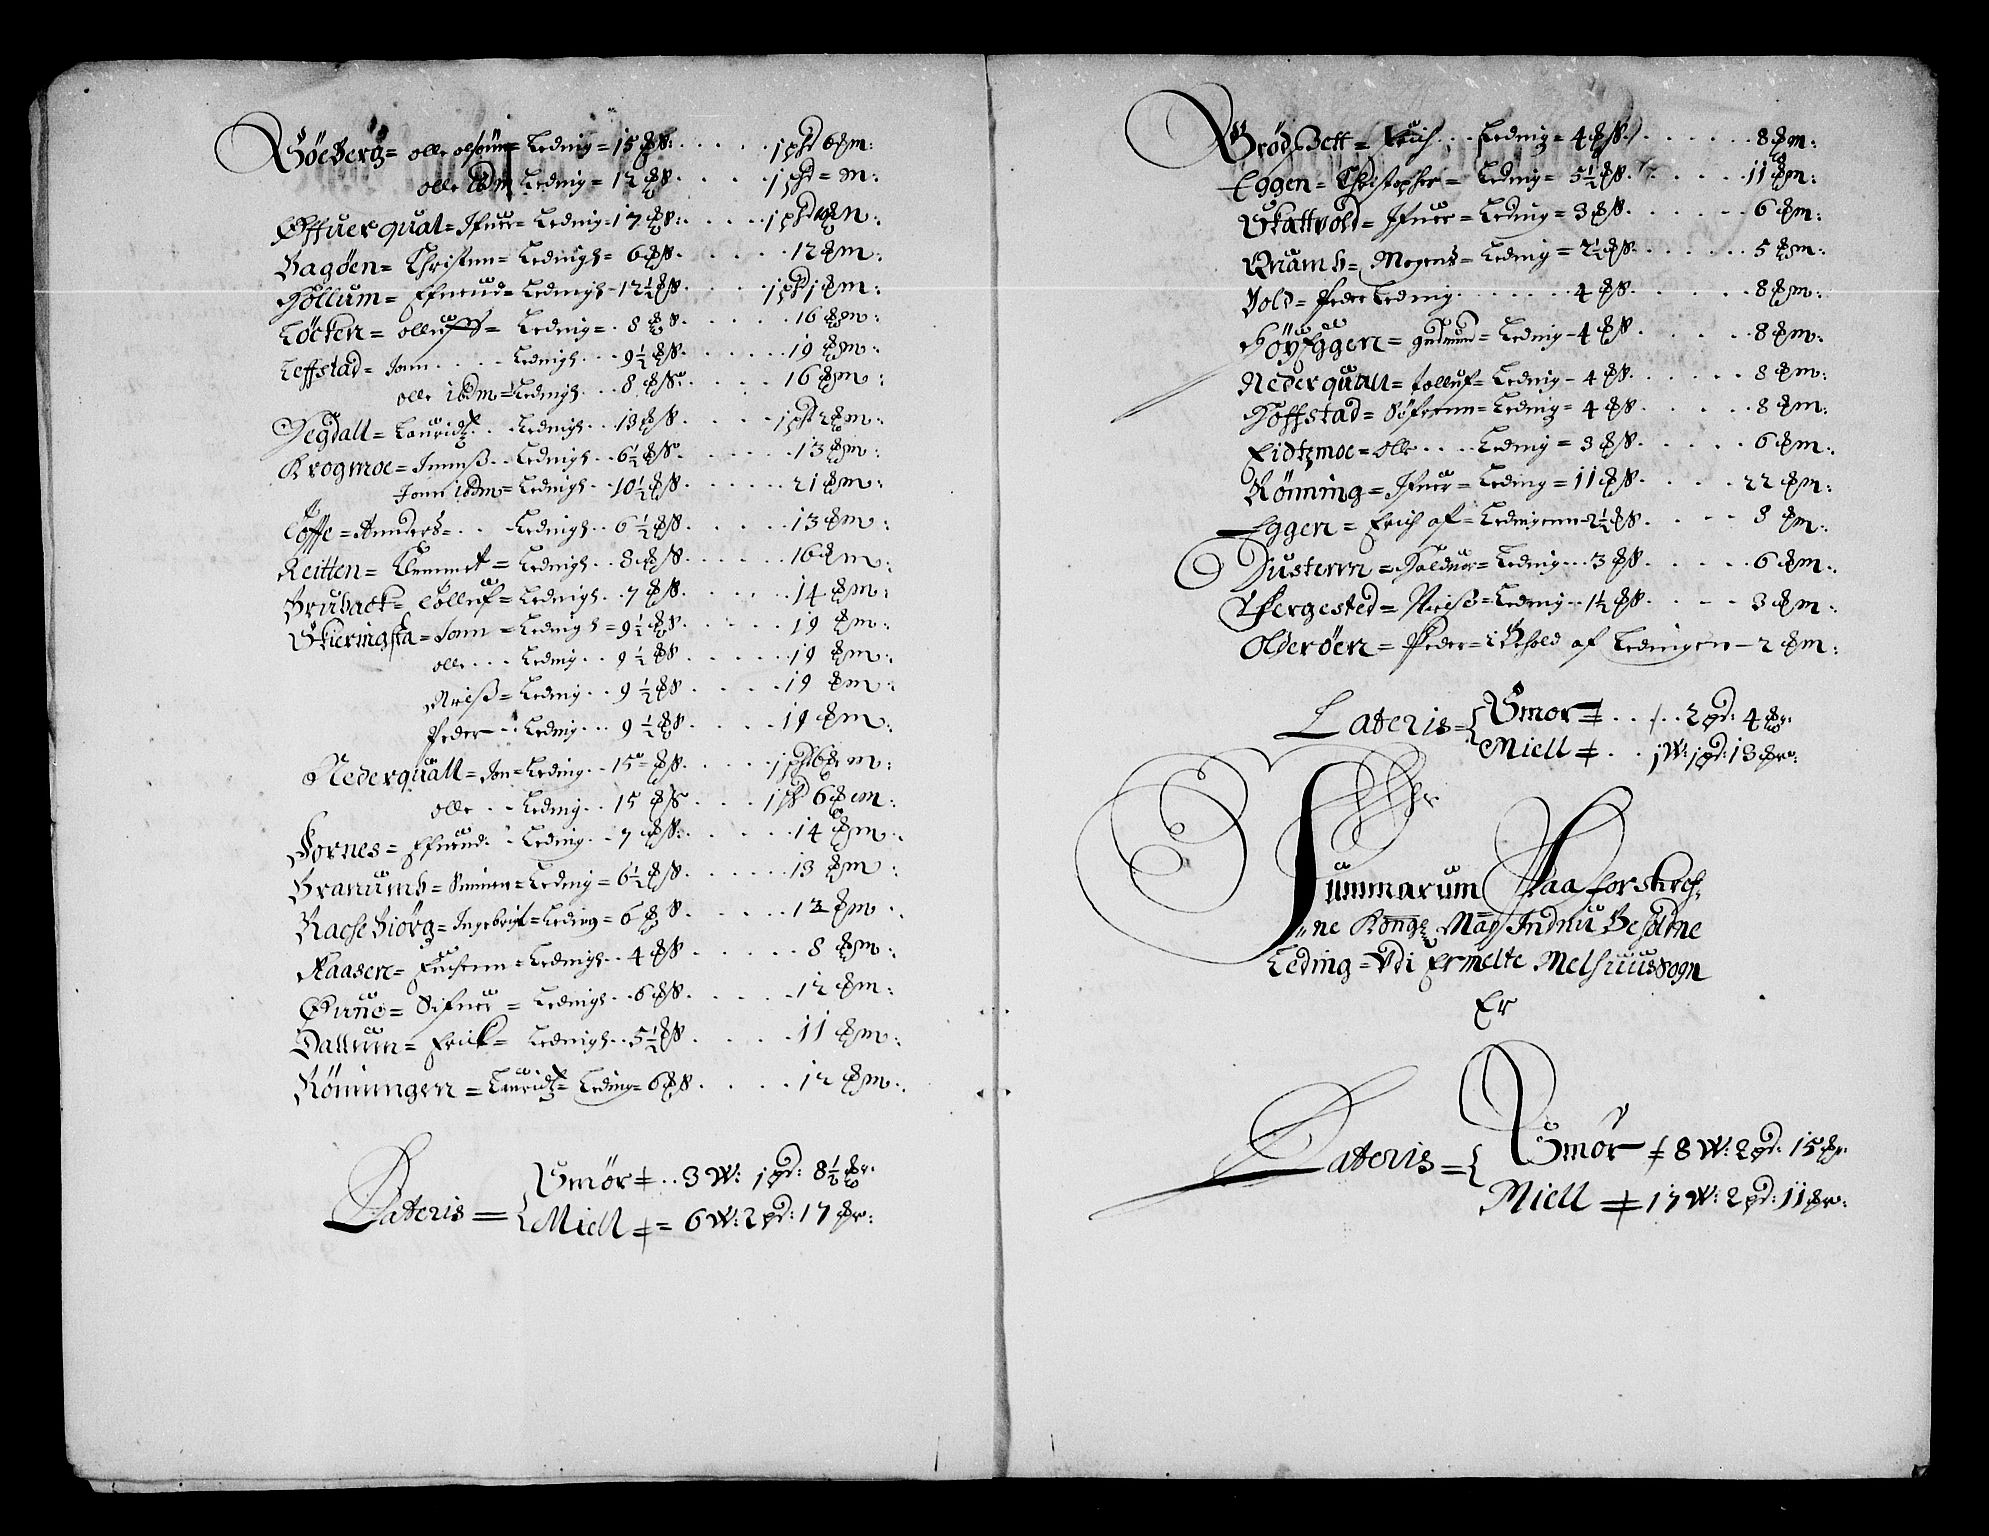 Söeberg = olle olsönn = Leding = 15 ℔ S: . . . . . 1 pd 6 ℔ m:
olle ibdm Leding = 12 ℔ S. . . . . 1 pd = m:
Offuerqual = Ifuer = Leding = 17 ℔ S: . . . . 1 pd 10 ℔ m:
Bagöen = Christen = Ledingh = 6 ℔ S. . . . . 12 ℔ m:
Hollum = Efuend = Ledingh = 12½ ℔ S. . . . . 1 pd 1 ℔ m:
Löcken = olluff = Leding = . 8 ℔ S. . . . . 16 ℔ m:
Leffstad = Jonn . . . . Ledingh . . 9½ ℔ S. . . . . 19 ℔ m:
olle ibdm = Ledingh . . 8 ℔ S. . . . . 16 ℔ m:
Degdall = Lauridtz . . Ledingh . . 13 ℔ S. . . . . 1 pd 2 ℔ m:
Krogmoe = Jenns . . Ledingh . . 6½ ℔ S. . . . . 13 ℔ m:
Jonn ibdm = Ledingh . . 10½ ℔ S. . . . . 21 ℔ m:
Loffe = Anders = . . Ledingh . . 6½ ℔ S. . . . . 13 ℔ m:
Reitten = Clemmet = Ledingh . . 8 ℔ S. . . . . 16 ℔ m:
Bruback = Tolluf = Ledingh . . 7 ℔ S. . . . . 14 ℔ m:
Skieringsta = Jonn = Ledingh = 9½ ℔ S. . . . . 19 ℔ m:
olle . . . Leding . . 9½ ℔ S. . . . . 19 ℔ m:
Neiß = Leding . . 9½ ℔ S. . . . . 19 ℔ m:
Peder . . Leding . . 9½ ℔ S. . . . . 19 ℔ m:
Nederquall = Jon = Leding . . 15 ℔ S. . . . . 1 pd 6 ℔ m:
olle . . . Leding . . 15 ℔ S. . . . 1 pd 6 ℔ m:
Fornes = Efuend . . Leding . . 7 ℔ S: . . . . . 14 ℔ m:
Branumb = Simen = Leding = 6½ ℔ S. . . . . 13 ℔ m:
Bachebiörg = Ingebrigt = Leding = 6 ℔ S. . . . . 12 ℔ m:
Kaasen = = Ledingh . . 4 ℔ S. . . . . 8 ℔ m:
Gruue = Sifuer = Ledingh . . 6 ℔ S. . . . . 12 ℔ m:
Dallum = Erick = Ledingh . . 5½ ℔ S. . . . . 11 ℔ m:
Rönningen = Lauridtz = Leding = 6 ℔ S. . . . . 12 ℔ m:
Lateris = Smör ≠ . . 3 W: 1 pd: 8½ ℔r.
Miell ≠ = 6 W: 2 pd: 17 ℔r:
Brödsett = Erich . . Leding = 4 ℔ S. . . . . 8 ℔ m:
Eggen = Christopher = Leding = 5½ ℔ S. . . . . 11 ℔ m:
Skattvold = Ifuer = Leding = 3 ℔ S. . . . . 6 ℔ m:
Quamb = Mogens = Leding = 2½ ℔ S. . . . . 5 ℔ m:
Vold = Peder Leding . . . . 4 ℔ S. . . . . 8 ℔ m:
Höyeggen = gudmund = Leding = 4 ℔ S. . . . . 8 ℔ m:
Nederquall = Tolluf = Leding = 4 ℔ S. . . . . 8 ℔ m:
Hoffstad = Söfrenn = Leding = 4 ℔ S. . . . . 8 ℔ m:
Eidtzmoe = olle . . . Leding = 3 ℔ S. . . . . 6 ℔ m:
Rönning = Ifuer = Leding = 11 ℔ S. . . . 22 ℔ m:
Eggen = Erich af = Ledingenn = 2½ ℔ S. . . . 8 ℔ m:
Dusterin = Haldvor = Leding . . 3 ℔ S. . . . . 6 ℔ m:
Vergested = Neiß = Leding . . 1½ ℔ S. . . . 3 ℔ m:
Olderöen = Peder = i af Ledingen — 2 ℔ m:
Lateris = Smor ≠ . . . . 2 pd: 4 ℔r.
Miell ≠ . . 1 W: 1 pd: 13 ℔r:
Summarum Paa forskref-
ne Konge May Indnu Besoldne
Leding = Vdi Ermelte Melhuussogn
Er
Lateris = Smör ≠ 8 W: 2 pd: 15 ℔r.
Miell ≠ 17 W: 2 pd: 11 ℔r: